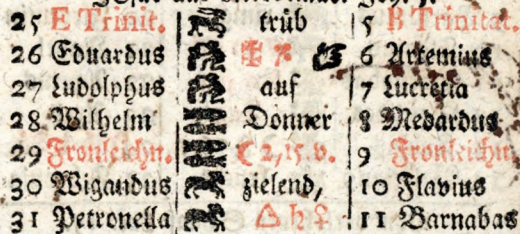 25 E Trinit. trüb 5 B Trinitat.
26 Eduardus 6 Artemius
27 Ludolphus auf 7 Lucretia
28 Wilhelm Donner 8 Medardus
29 Fronleichn. ☾ 2,15. v. 9 Fronleichn.
30 Wigandus zielend, 10 Flavius
31 Petronella △ ♄ ♀ 11 Barnabas